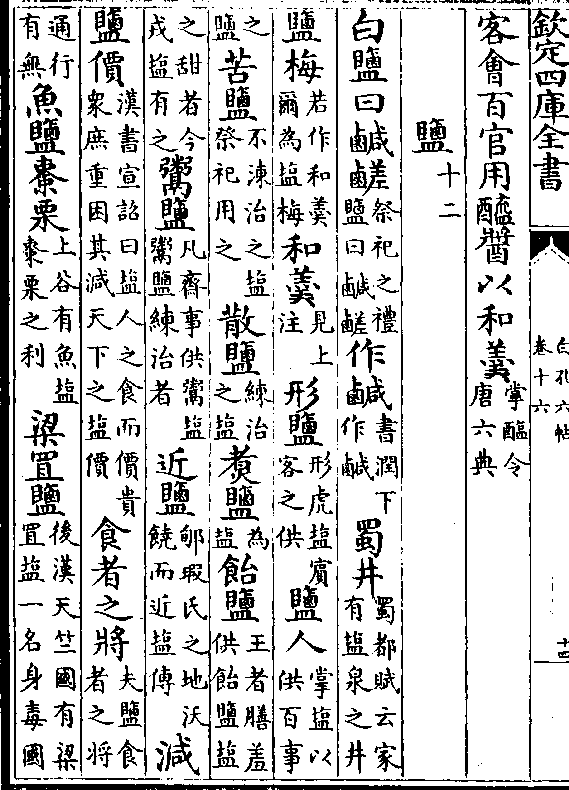 欽定四庫全書
白孔六帖
卷十六
十四
客會百官用醯醬以和羹掌醢令唐六典
鹽十二
白鹽曰鹹鹺祭祀之禮鹽曰鹹鹺作鹹書潤下作鹹蜀井蜀都賦云家有塩泉之井
鹽梅若作和羮爾為塩梅和羮見上注形鹽形虎塩賔客之供鹽人掌塩以供百事
之鹽苦鹽不湅治之塩祭祀用之散鹽練治之塩煑鹽為塩飴鹽王者膳羞供飴鹽塩
之甜者今戎塩有之鬻鹽凡齊事供鬻塩鬻鹽練治者近鹽郇瑕氏之地沃饒而近塩傳減
鹽價漢書宣詔曰塩人之食而價貴衆庶重困其減天下之塩價食者之將夫鹽食者之将
通行有無魚鹽棗栗上谷有魚塩棗栗之利梁置鹽後漢天竺國有梁置塩一名身毒國